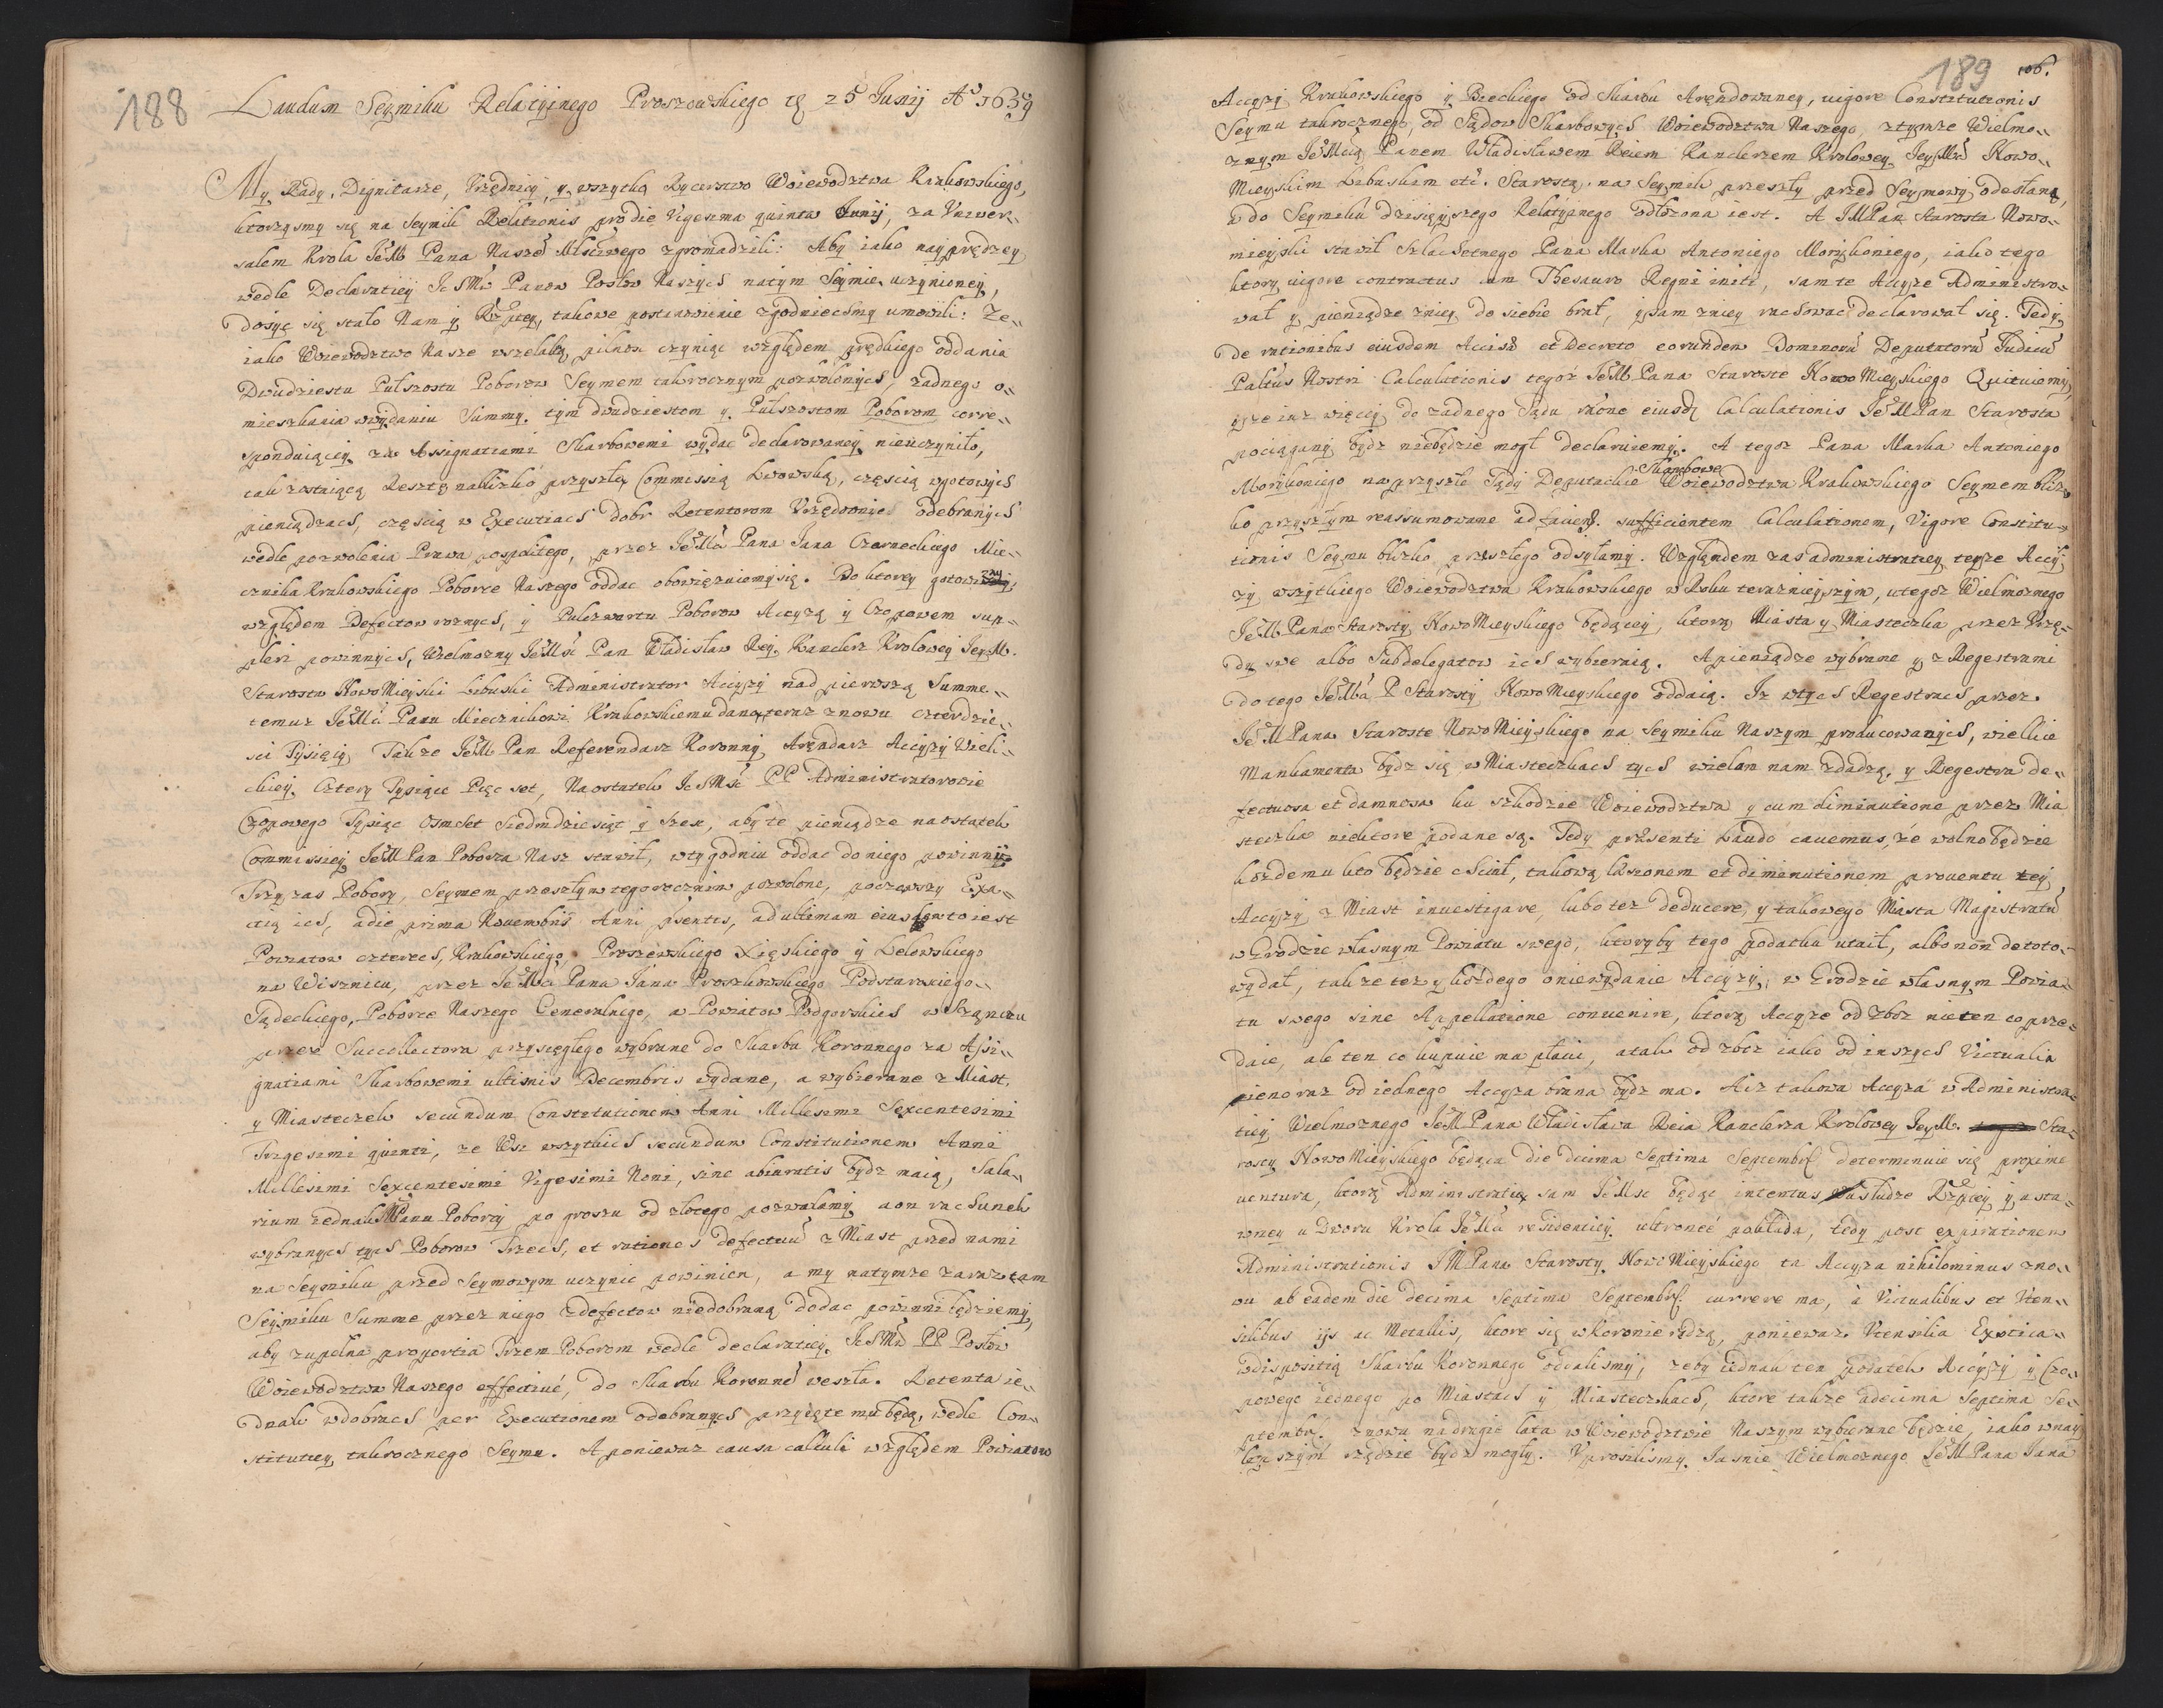 188
Laudum Seymiku Relatyjnego Proszowskiego 25 Junij Aō 1639
My Rady, Dignitarze, Vrzędnicy, y wszytko Rycerstwo Woiewodztwa Krakowskiego,
ktorzysmy się na Seymik Relationis pro die Vigesima quinta Junij, za Vniwer-
salem Krola JeoM Pana Naszeo Mściwego zgromadzili: Aby iako nayprędzey
wedle Declaratiey IchMw Panow Posłow Naszych na tym Seymie uczynioney,
dosyc się stało Nam y Rzptey, takowe postanowienie zgodniechmy umowili: Ze-
iako Woiewodztwo Nasze wszelaką pilnosc czyniąc względem prędkiego oddania
Dwudziestu Pułszostu Poborow Seymem takrocznym pozwolonych, zadnego o-
mieszkania w wydaniu Summy, tym dwudziestom y Pułszostom Poborom corre-
sponduiącey za Assignatiami Skarbowemi wydac declarowaney nieuczyniło,
tak zostaiącą Resztę na blizko przyszłą Commissią Lwowską, częscią w gotowych
pieniądzach, częscią w Executiach dobr Retentorom Vrzędownie odebranych
wedle pozwolenia Prawa pospolitego, przez JeoMci Pana Jana Czarneckiego Mie-
cznika Krakowskiego Poborce Naszego oddac obowięzuiemy się. Do ktorey gotowizny
względem Defectow roznych, y Pułczwartu Poborow Accyzą y Czopowem sup-
pleri powinnych, Wielmozny JeoMsc Pan Władisław Rey Kanclerz Krolowey JeyM.
Starosta NowoMieyski Libuski Administrator Accyzy nad pierwszą Summe
temuz JeoMci Panu Miecznikowi Krakowskiemu daną, teraz znowu czterdzie-
sci Tysięcy, Takze JeoM Pan Referendarz Koronny Arędarz Accyzy Wieli-
ckiey Cztery Tysiące Pięc set, Na ostatek IchMsc PP Administratorowie
Czopowego Tysiąc Osmset Siedmdziesiąt y szesc, aby te pieniądze na ostatek
Commissiey JeoM Pan Poborca Nasz stawił, w tygodniu oddac do niego powinni
Trzy zas Pobory, Seymem przeszłym tegorocznim pozwolone, począwszy Exa-
ctią ich, a die prima Nouembris Anni pſentis, ad ultimam eiusdem to iest
Powiatow czterech, Krakowskiego, Proszowskiego Xięskiego y Lelowskiego
na Wisznicu, przez JeoMci Pana Jana Proszkowskiego Podstarosciego
Sądeckiego, Poborce Naszego Generalnego, a Powiatow Podgorskich w Sączu
przez Succollectora przysięgłego wybrane do Skarbu Koronnego za Assi-
gnatiami Skarbowemi ultimis Decembris wydane, a wybierane z Miast,
y Miasteczek secundum Constitutionem Anni Millesimi Sexcentesimi
Trigesimi quinti, ze Wsi wszytkich secundum Constitutionem Anni
Millesimi Sexcentesimi Vigesimi Noni, sine abiuratis bydz maią, Sala-
rium iednak MPanu Poborcy po groszu od złotego pozwalamy, a on rachunek
wybranych tych Poborow Trzech, et rationes defectuu z Miast przed nami
na Seymiku przed Seymowym uczynic powinien, a my na tymze zaraz tam
Seymiku Summe przez niego z defectow niedobraną dodac powinni będziemy,
aby zupełna proportia Trzem Poborom wedle declaratiey IchMw PP Posłow
Woiewodztwa Naszego effectiué, do Skarbu Koronneo weszła. Retenta ie-
dnak w dobrach per Executionem odebranych przyięte mu będą, wedle Con-
stitutiey takrocznego Seymu. A poniewaz causa calculi względem Powiatow
189 106.
Accyzy Krakowskiego y Bieckiego od Skarbu Arędowaney, uigore Constitutionis
Seymu takrocznego, od Sądow Skarbowych Woiewodztwa Naszego, z tymze Wielmo-
znym JeoMcią Panem Władisławem Reiem Kanclerzem Krolowey JeyMci Nowo-
Mieyskim Libuskim etc. Starostą, na Seymik przeszły przed Seymowy odesłana,
a do Seymiku dzisieyszego Relatyjnego odłozona iest. A JMPan Starosta Nowo-
mieyski stawił Szlachetnego Pana Marka Antoniego Morykoniego, iako tego
ktory uigore contractus cum Thesauro Regni initi, sam te Accyze Administro-
wał y pieniądze z niey do siebie brał, y sam z niey rachowac declarował się. Tedy
de rationibus eiusdem Accisæ et Decreto eorundem Dominorū Deputatorū Judicū
Paltus Nostri Calculationis tegoz JeoM Pana Staroste NowoMieyskiego Quituiemy,
y ze iuz więcey do zadnego Sądu, rāōne eiusdē Calculationis JeoMPan Starosta
pociągany bydz niebędzie mogł declaruiemy. A tegoz Pana Marka Antoniego
Morykoniego na przyszłe Sądy Deputackie Skarbowe Woiewodztwa Krakowskiego Seymem blizo
ko przyszłym reassumowane ad faciend. sufficientem Calculationem, Vigore Constitu-
tionis Seymu blizko przeszłego odsyłamy. Względem zas administratiey teyze Accy-
zy wszytkiego Woiewodztwa Krakowskiego w Roku teraznieyszym, u tegoz Wielmoznego
JeoM Pana Starosty NowoMieyskiego będącey, ktorą Miasta y Miasteczka przez Vrzę-
dy swe albo Subdelegatow ich wybieraią. A pieniądze wybrane y z Regestrami
do tego JeoMci P Starosty NowoMieyskiego oddaią. Iz w tych Regestrach przez
JeoM Pana Staroste NowoMieyskiego na Seymiku Naszym producowanych, wielkie
Mankamenta bydz się w Miasteczkach tych wielom nam zdadzą, y Regestra de-
fectuosa et damnosa ku szkodzie Woiewodztwa y cum diminutione przez Mia
steczka niektore podane są. Tedy præsenti Laudo cauemus, ze wolno będzie
kozdemu kto będzie chciał, takową læsionem et diminutionem prouentu tey
Accyzy z Miast inuestigare, lubo tez deducere, y takowego Miasta Magistratū
w Grodzie własnym Powiatu swego, ktoryby tego podatku utaił, albo non de toto
wydał, takze tez y kozdego o niewydanie Accyzy, w Grodzie własnym Powia-
tu swego sine Appellatione conuenire, ktorą Accyze od zboz nie ten co prze-
daie, ale ten co kupuie ma płacic, a tak od zboz iako od inszych Victualia
ieno raz od iednego Accyza brana bydz ma. A iz takowa Accyza w Administra-
tiey Wielmoznego JeoM Pana Władisława Reia Kanclerza Krolowey JeyM. Sta-
rosty NowoMieyskiego będąca die decima Septima Septembris determinuie się proxime
uentura, ktorą Administratią sam JeoMsc będąc intentus na słudze Rzptey y usta-
wney u Dworu Krola JeoMci residentiey ultronee pokłada, tedy post expirationem
Administrationis JMPana Starosty NowoMieyskiego ta Accyza nihilominus zno-
wu ab eadem die decima Septima Septembris currere ma, à Victualibus et Vten-
silibus ijs ac Metallis, ktore się w Koronie rodzą, poniewaz Vtensilia Exotica
w dispositią Skarbu Koronnego oddalismy, zeby iednak ten podatek Accyzy y Czo-
powego iednego po Miastach y Miasteczkach, ktore takze a decima Septima Se-
ptembr. znowu na drugie lata w Woiewodztwie Naszym wybierane będzie, iako w nay-
lepszym rządzie bydz mogły. Vprosilismy Jasnie Wielmoznego JeoM Pana Jana